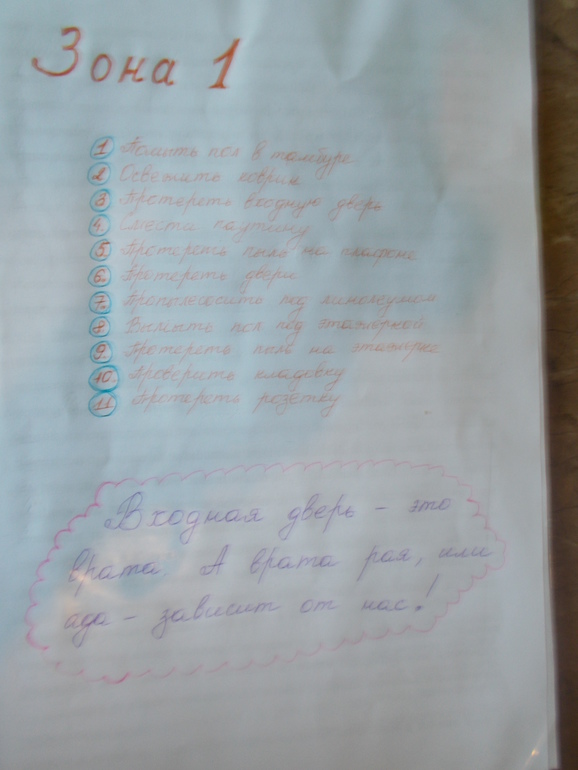 Зона 1
1 Помыть пол в тамбуре
2 Освежить коврик
3 Протереть входную дверь
4. Смести паутину
5. Протереть пыль на плафоне
6. Протереть двери
7. Пропылесосить под линолеумом
8 Вымыть пол под этажеркой
9. Протереть пыль на этажерке
10. Проверить кладовку
11 Протереть розетку
Входная дверь - это
врата. А врата рая, или
ада - зависит от нас!